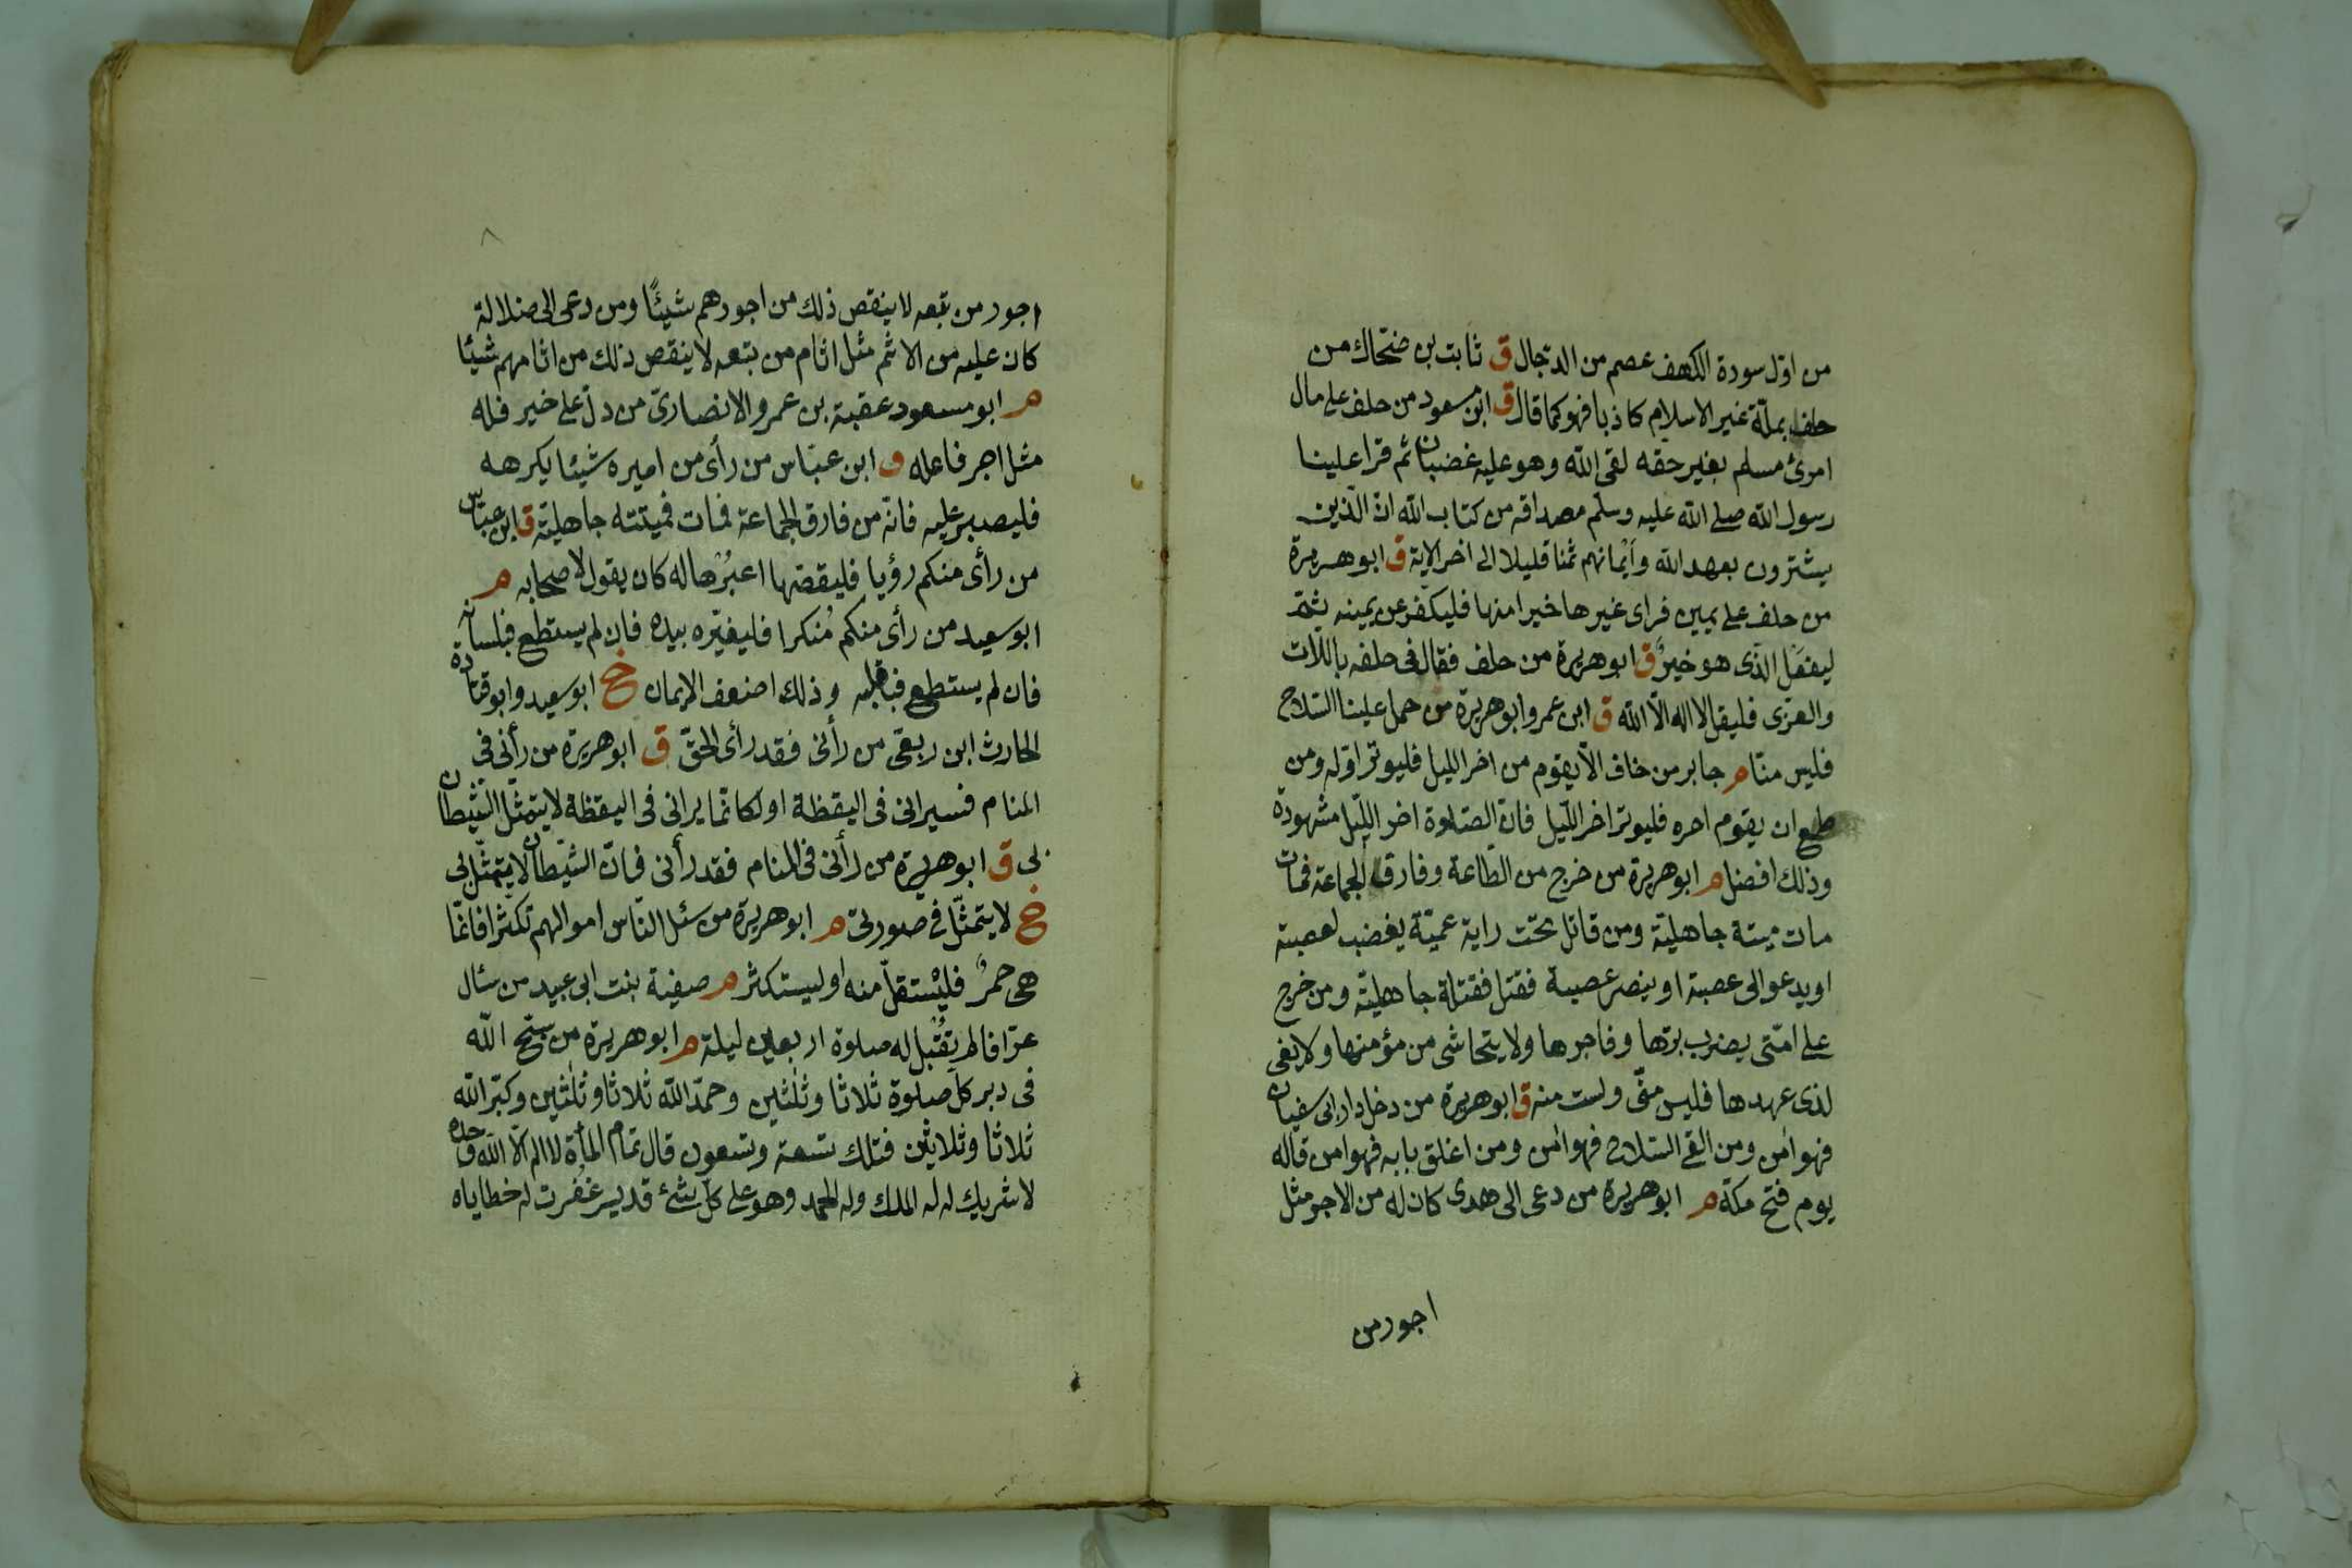 من اوّل سورة الكهف عصم من الدّجال ق ثابت بن ضحّاك من
حلف بملّة غير الاسلام كاذبا فهو كما قال ق ابن مسعود من حلف على مال
امرئ مسلم بغير حقه لقى الله وهو عليه غضبان ثم قرا علينا
رسول الله صلى الله عليه وسلّم مصداقه من كتاب الله انّ الّذين
يشترون بعهد الله وأيمانهم ثمنا قليلا الى اخر الاية ق ابو هريرة
من حلف على يمين فراى غيرها خيرا منها فليكفّر عن يمينه ثمّ
ليفعل الّذى هو خيرٌ ق ابو هريرة من حلف فقال فى حلفه باللّات
والعزّى فليقل لا اله الّا الله ق ابن عمر وابو هريرة من حمل علينا السّلاح
فليس منّا م جابر من خاف الّا يقوم من اخر الليل فليوتر اوّله ومن
طمع ان يقوم اخره فليوتر اخر اللّيل فانّ الصّلوة اخر اللّيل مشهودة
وذلك افضل م ابو هريرة من خرج من الطّاعة وفارق الجماعة فمات
مات ميتة جاهليّة ومن قاتل تحت راية عميّة يغضب لعصبة
او يدعو الى عصبة او ينصر عصبة فقتل فقتلة جاهليّة ومن خرج
على امّتى يضرب برّها وفاجرها ولا يتحاشى من مؤمنها ولا يفى
لذى عهدها فليس منّى ولست منه ق ابو هريرة من دخل دار ابى سفيان
فهو امن ومن القى السّلاح فهو امن ومن اغلق بابه فهو امن قاله
يوم فتح مكة م ابو هريرة من دعى الى هدى كان له من الاجر مثل
اجور من
٨
اجور من تبعه لا ينقص ذلك من اجورهم شيئًا ومن دعى الى ضلالة
كان عليه من الاثم مثل اثام من تبعه لا ينقص ذلك من اثامهم شيئا
م ابو مسعود عقبة بن عمرو الانصارىّ من دلّ على خير فله
مثل اجر فاعله ق ابن عبّاس من رأى من اميره شيئا يكرهه
فليصبر عليه فانّه من فارق الجماعة فمات فميتته جاهليّة ق ابن عبّاس
من رأى منكم رؤيا فليقصّها اعبُرْها له كان يقول لاصحابه م
ابو سعيد من رأى منكم مُنكرا فليغيّره بيده فان لم يستطع فبلسانه
فان لم يستطع فبقلبه وذلك اضعف الايمان خ ابو سعيد وابو قتادة
الحارث ابن ربعىّ من رأنى فقد رأى الحقّ ق ابو هريرة من رأنى فى
المنام فسيرانى فى اليقظة او لكانّما يرانى فى اليقظة لا يتمثّل الشّيطان
بى ق ابو هريرة من رأنى فى المنام فقد رأنى فانّ الشّيطان لا يتمثّل بى
خ لا يتمثّل فى صورتى م ابو هريرة من سئل النّاس اموالهم تكثرا فانّما
هى جمرٌ فليستقلّ منه او ليستكثر م صفيّة بنت ابى عبيد من سئال
عرّافا لم يُقبل له صلوة اربعين ليلة م ابو هريرة من سبّح الله
فى دبر كلّ صلوة ثلاثا وثلٰثين وحمّد الله ثلاثا وثلٰثين وكبّر الله
ثلاثا وثلاثين فتلك تسعة وتسعون قال تمام المأة لا اله الّا الله وحده
لا شريك له له الملك وله الحمد وهو على كلّ شئ قدير غفرت له خطاياه